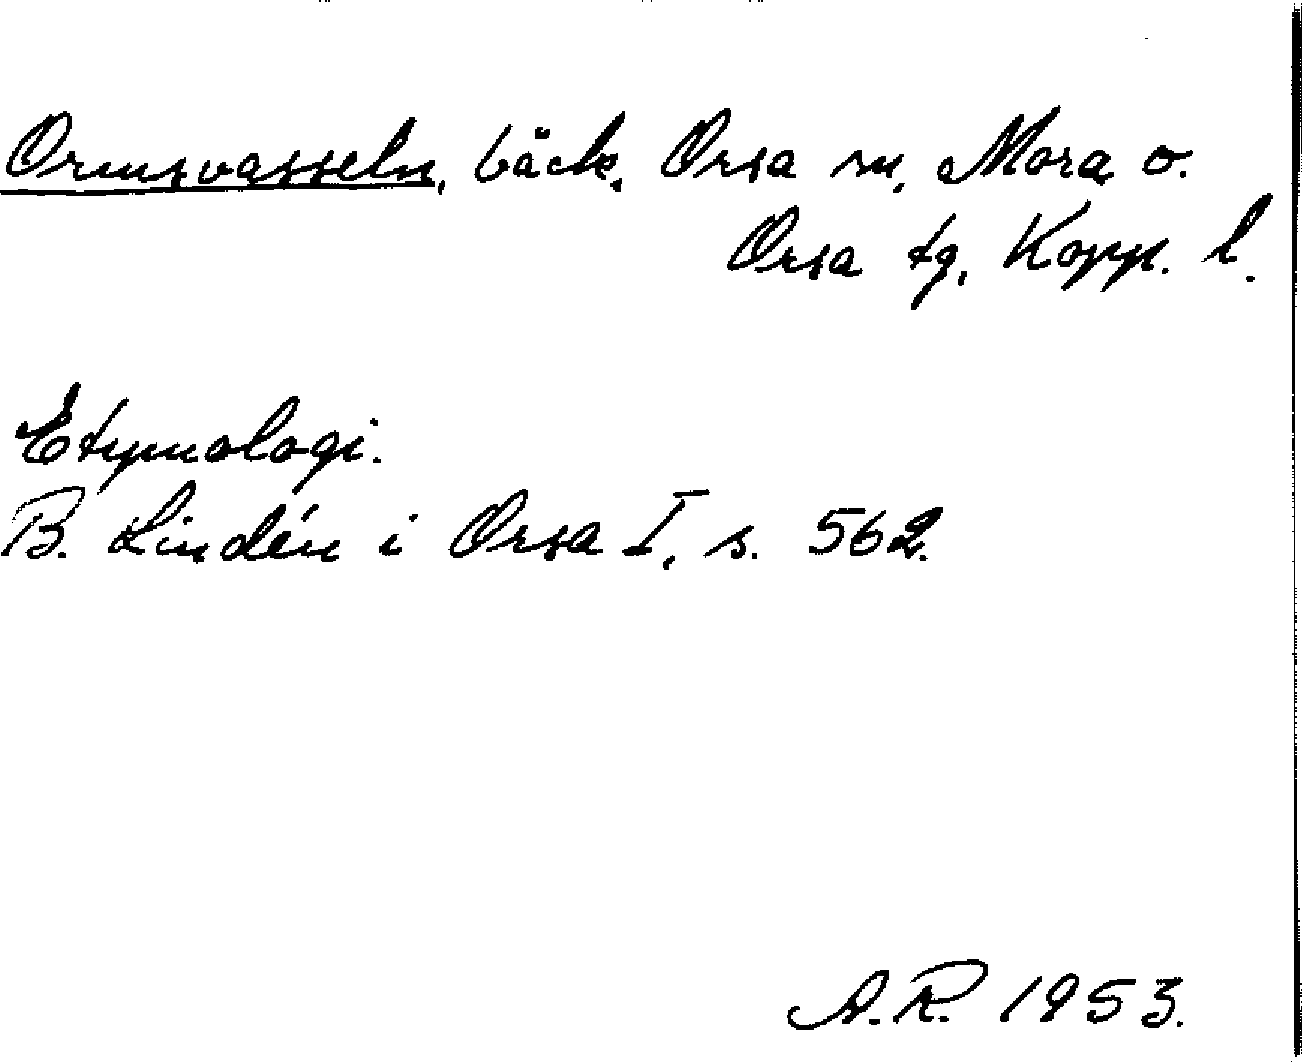 Ormsvasseln, bäck, Orsa sn, Mora o.
Orsa tg, Kopp. l.
Etymologi.
B. Lindén i Orsa I, s. 562.
A.R. 1953.